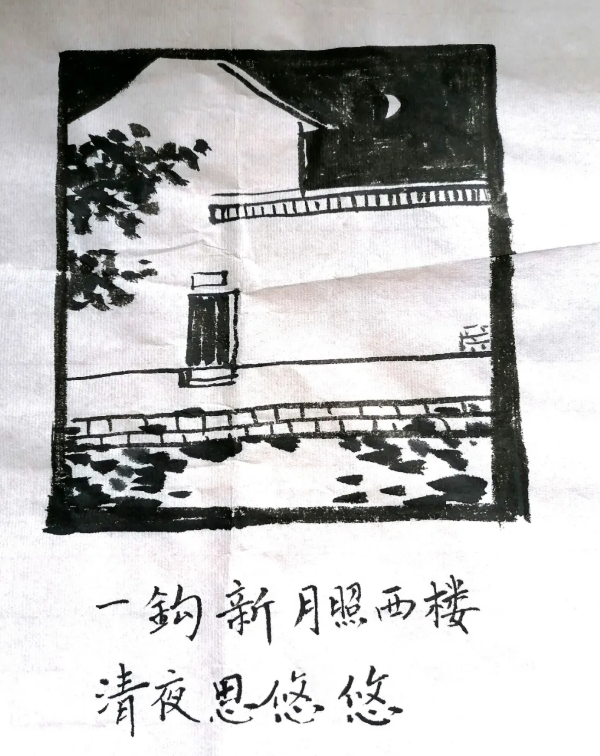 一鈎新月照西楼
清夜思悠悠